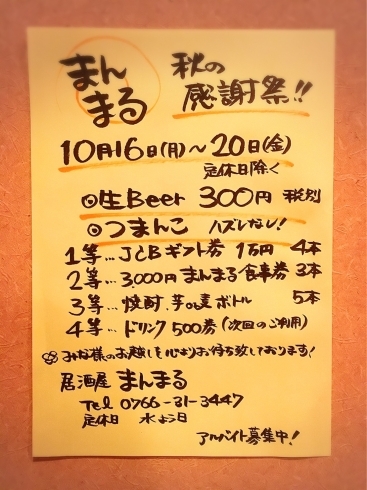 まんまる
秋の
感謝祭!!
10月16日(月)〜20日(金)
定休日除く
◎生Beer 300円 税別
◎つまんこ ハズレなし!
1等… JCBギフト券 1万円 4本
2等… 3,000円 まんまる食事券 3本
3等… 焼酎.芋or麦 ボトル 5本
4等… ドリンク 500券 (次回のご利用)
みな様のお越しを心よりお待ち致しております!
居酒屋 まんまる
Tel 0766-31-3447
定休日 水よう日
アルバイト募集中!